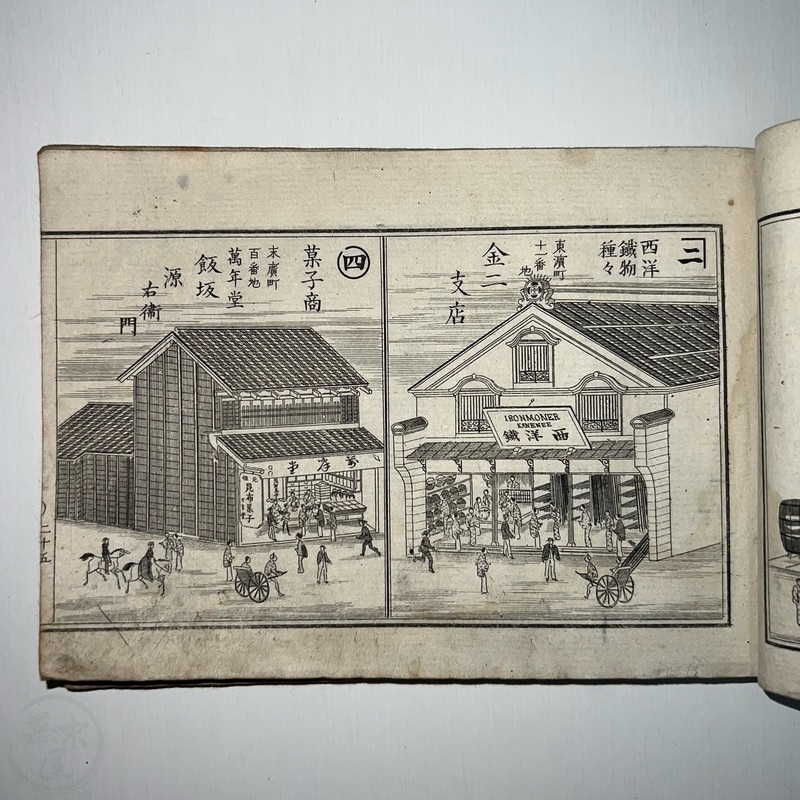 二
西洋
鐵物
種々
東濱町
十一番地
金二
支店
IRONMONER
KANENEE
鐵洋西
四
菓子商
末廣町
百番地
萬年堂
飯坂
源右衞門
昆布菓子
二十五